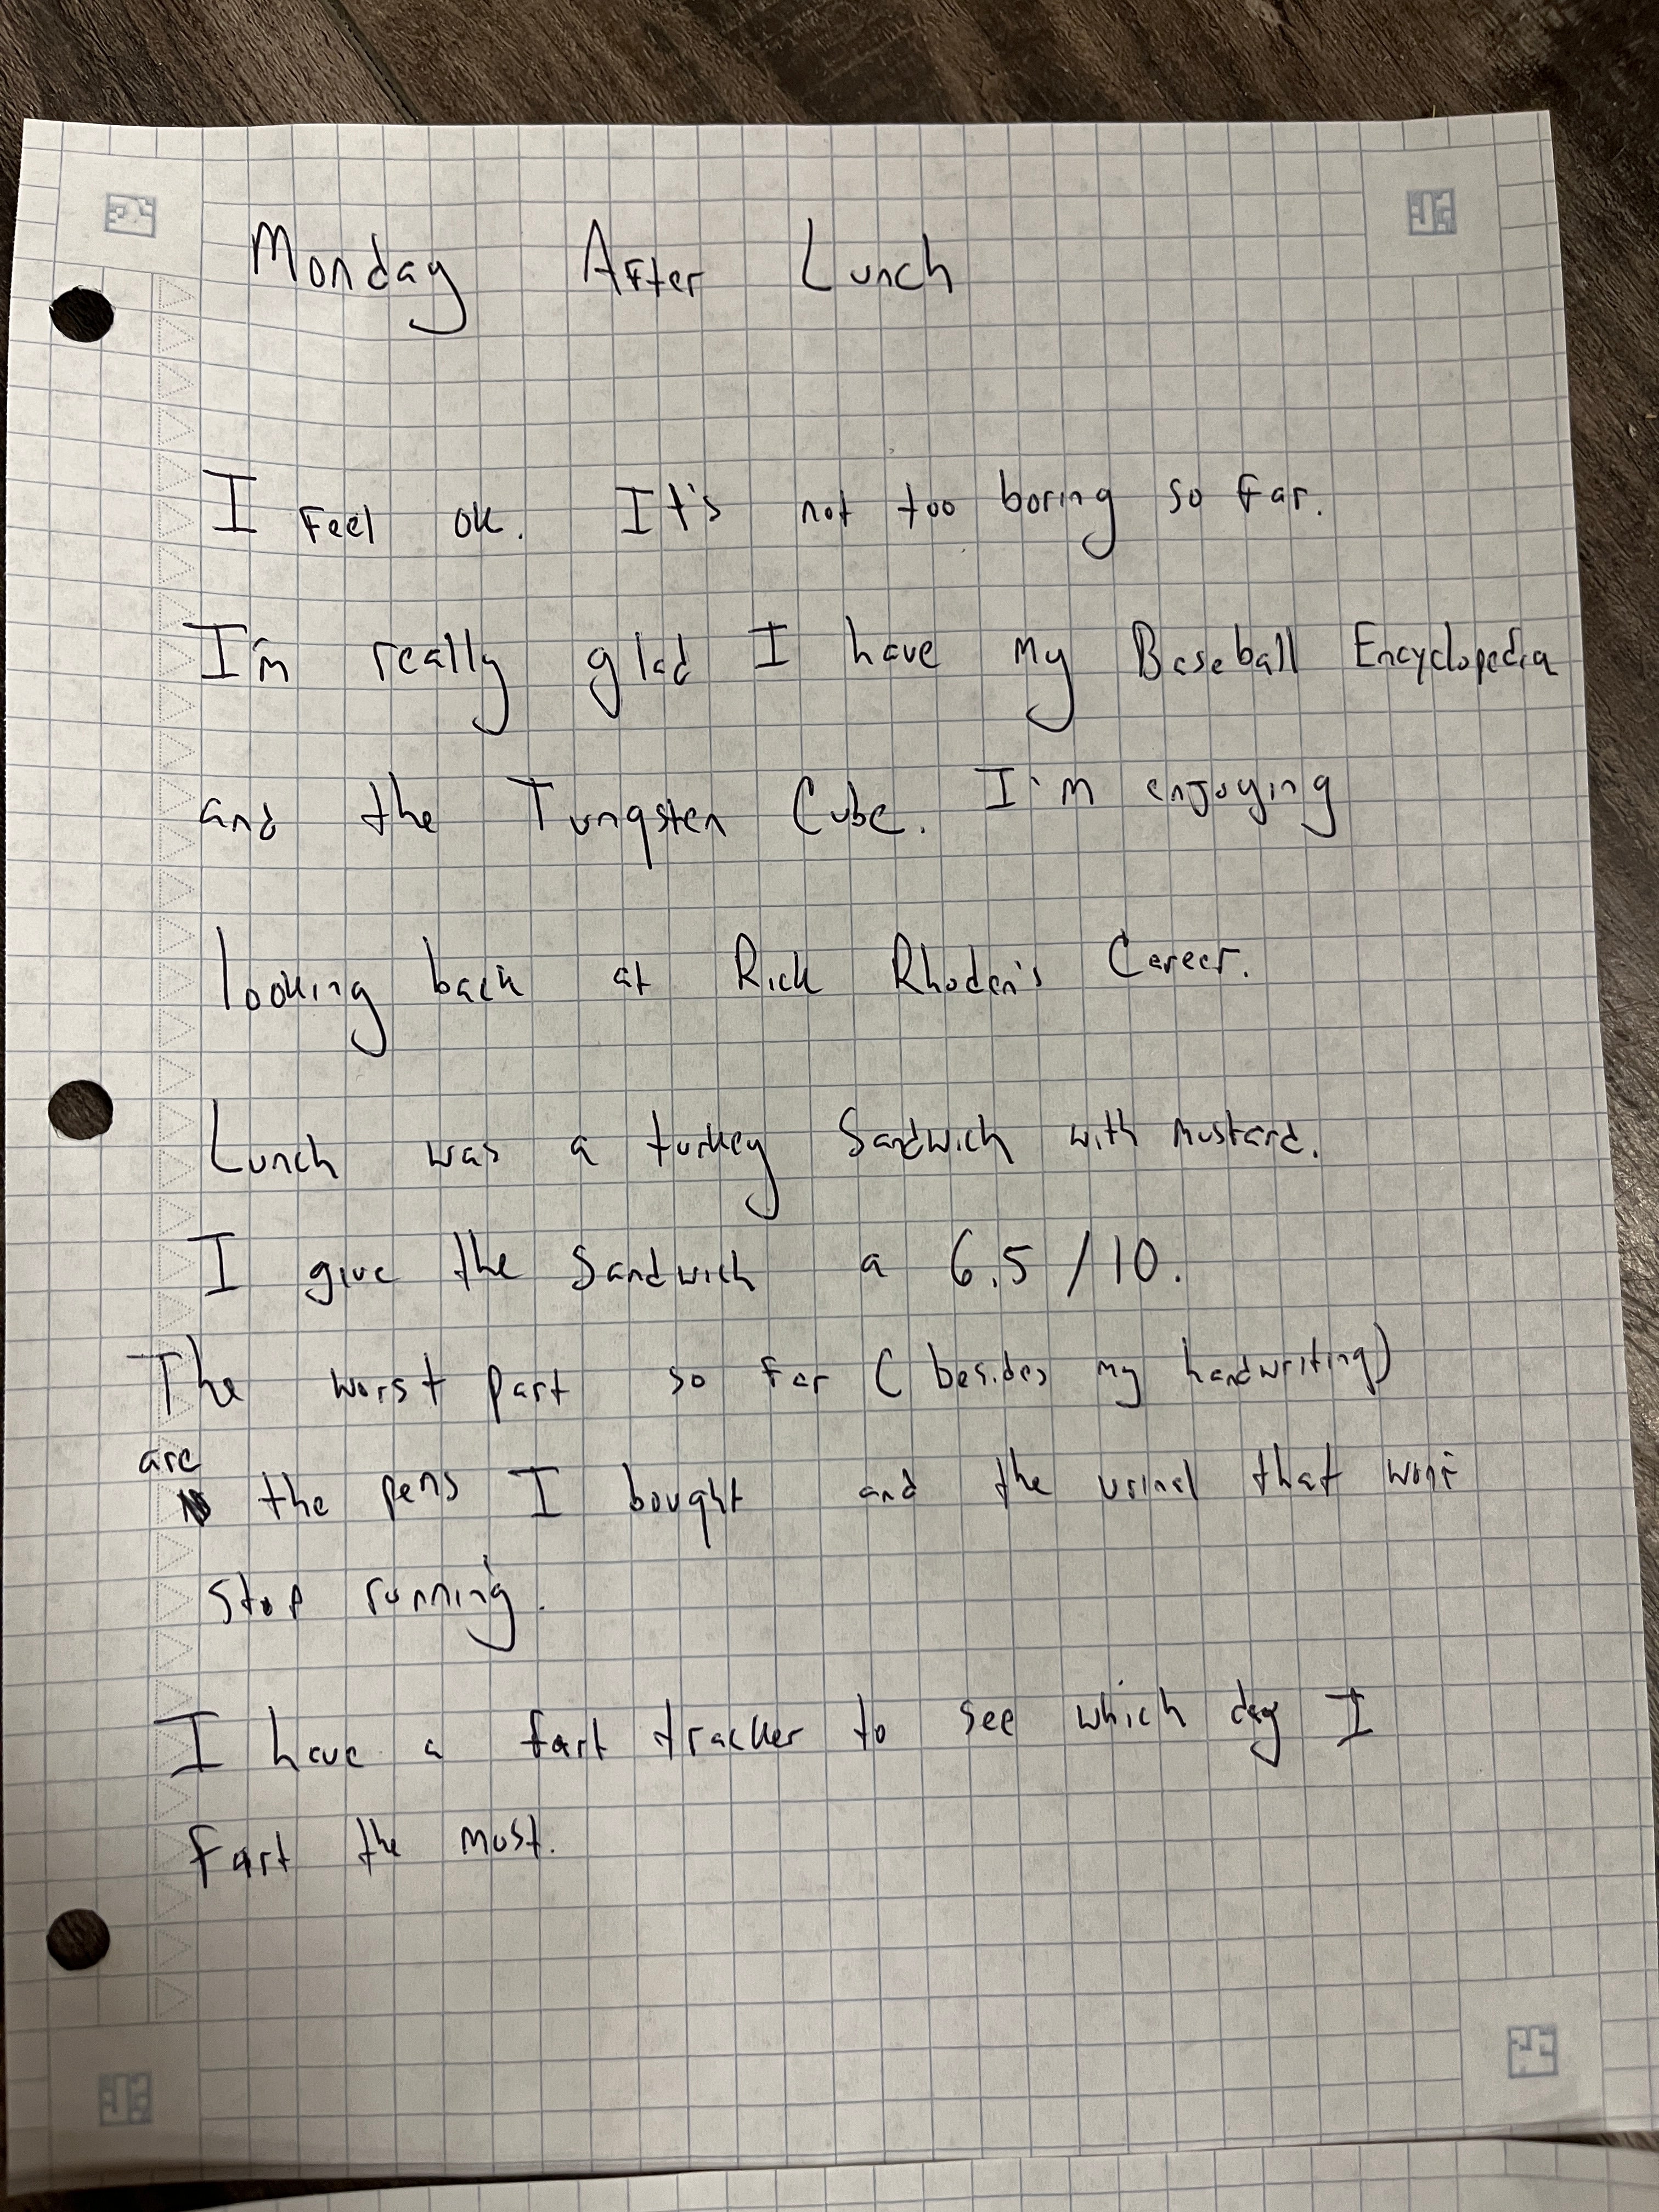 Monday After Lunch
I Feel ok. It's not too boring so far.
I'm really glad I have my Baseball Encyclopedia
and the Tungsten Cube. I'm enjoying
looking back at Rick Rhoden's Career.
Lunch was a turkey Sandwich with mustard.
I give the Sandwich a 6.5/10.
The worst part so far (besides my handwriting)
are
the pens I bought and the urinal that won't
stop running.
I have a fart tracker to see which day I
fart the most.